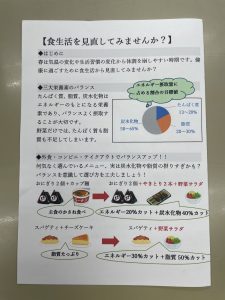 【食生活を見直してみませんか？】
◆はじめに
春は気温の変化や生活習慣の変化から体調を崩しやすい時期です。健
康に過ごすために食生活から見直してみませんか？
◆三大栄養素のバランス
たんぱく質、脂質、炭水化物は
エネルギーのもとになる栄養
素であり、バランスよく摂取す
ることが大切です。
野菜だけでは、たんぱく質も脂
質も不足してしまいます。
エネルギー摂取量に
占める割合の目標値
たんぱく質
脂質
20～30%
炭水化物
50～65%
◆外食・コンビニ・テイクアウトでバランスアップ！！
何気なく選んでいるメニュー、実は炭水化物や脂質の摂りすぎかも？
バランスを意識して選び方を工夫しましょう！
おにぎり2個＋カップ麺
おにぎり2個＋やきとり2本＋野菜サラダ
主食のかさね食べ
エネルギー20%カット＋炭水化物40%カット
スパゲティ＋チーズケーキ
スパゲティ＋野菜サラダ
脂質たっぷり
エネルギー30%カット＋脂質50%カット